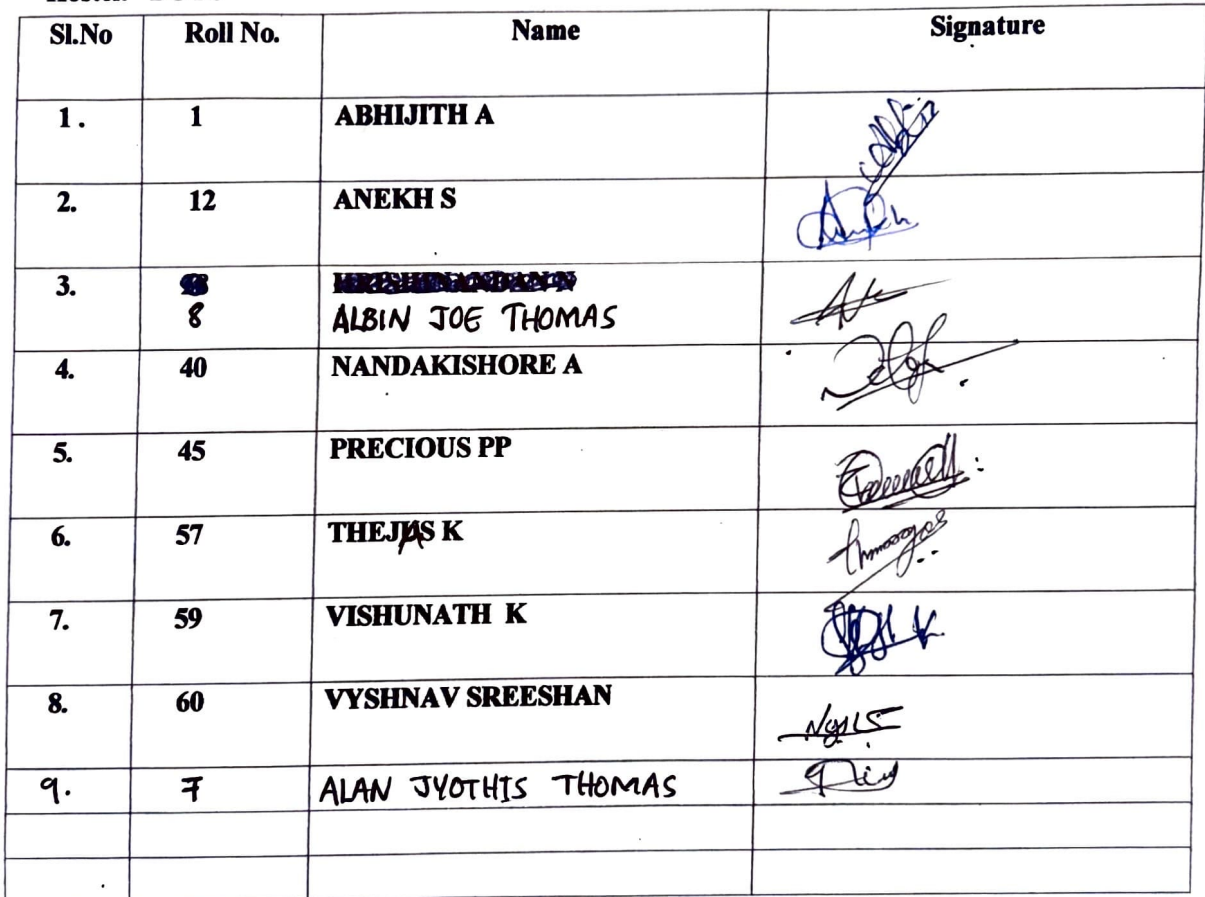 Sl.No Roll No. Name Signature
1. 1 ABHIJITH A
2. 12 ANEKH S
3.
8 ALBIN JOE THOMAS
4. 40 NANDAKISHORE A
5. 45 PRECIOUS PP
6. 57 THEJAS K
7. 59 VISHUNATH K
8. 60 VYSHNAV SREESHAN
9. 7 ALAN JYOTHIS THOMAS